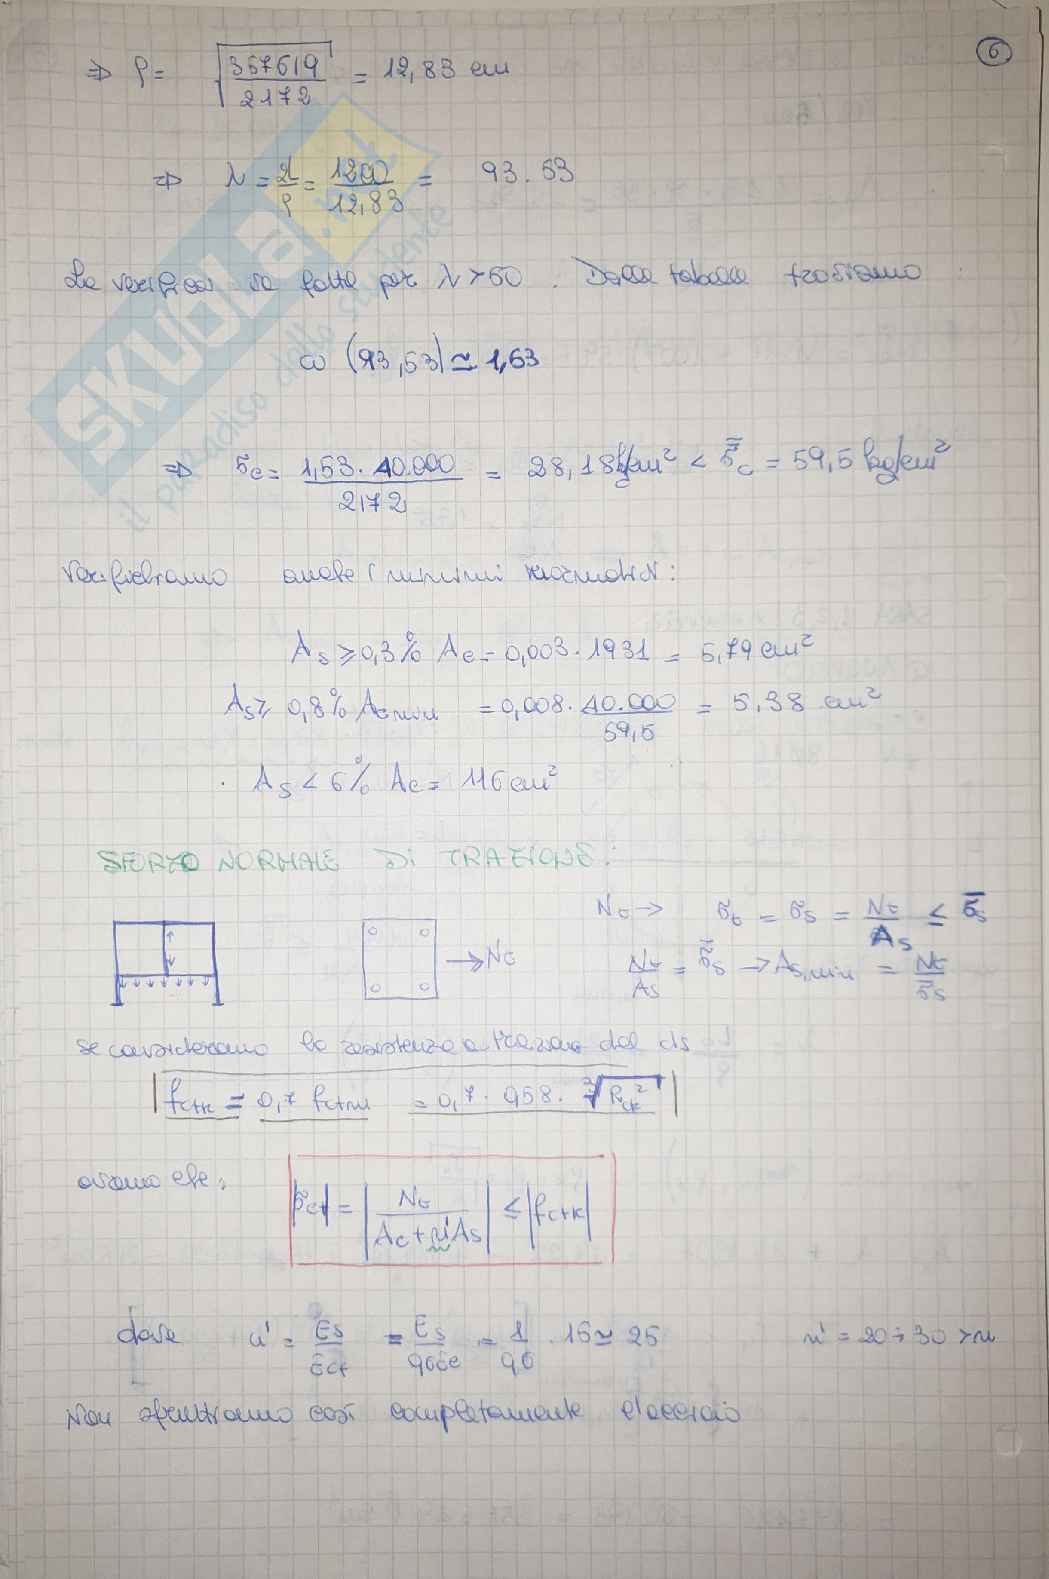 6
⇒ ρ = √(357619/2172) = 12,83 cm
⇒ λ = l/ρ = 1200/12,83 = 93.53
La verifica va fatta per λ > 50. Dalla tabella troviamo
ω (93,53) ≃ 1,53
⇒ σc = 1,53 · 40.000/2172 = 28,18 kg/cm² < σ̿c = 59,5 kg/cm²
Verifichiamo anche i minimi normativi:
As ≥ 0,3% Ac = 0,003 · 1931 = 5,79 cm²
As ≥ 0,8% Ac min = 0,008 · 40.000/59,5 = 5,38 cm²
· As < 6% Ac = 116 cm²
SFORZO NORMALE DI TRAZIONE:
Nt → σt = σs = Nt/As ≤ σ̄s
→ Nt
Nt/As = σ̄s → As,min = Nt/σ̄s
se consideriamo la resistenza a trazione del cls
fctk = 0,7 fctm = 0,7 · 0,58 · ∛(Rck²)
avremo che:
|σct| = |Nt/(Ac + n'As)| ≤ |fctk|
dove n' = Es/Ect = Es/0,6Ec = 1/0,6 · 15 ≃ 25 n' = 20 ÷ 30 > n
Non sfruttiamo così completamente l'acciaio
SKUOLA.it
il paradiso dello studente